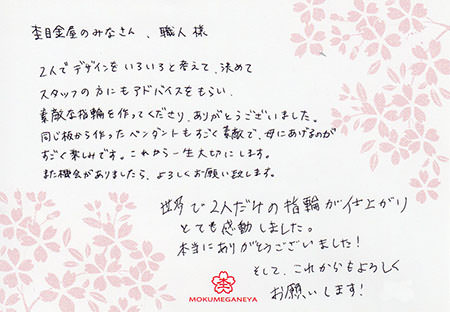 杢目金屋のみなさん、職人様
2人でデザインをいろいろと考えて、決めて
スタッフの方にもアドバイスをもらい、
素敵な指輪を作ってくださり、ありがとうございました。
同じ板から作ったペンダントもすごく素敵で、母にあげるのが
すごく楽しみです。これから一生大切にします。
また機会がありましたら、よろしくお願い致します。
世界で2人だけの指輪が仕上がり
とても感動しました。
本当にありがとうございました!
そして、これからもよろしく
お願いします!
MOKUMEGANEYA